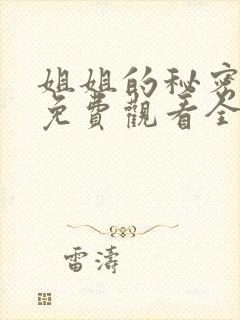 姐姐的秘密
免費觀看全
雷濤